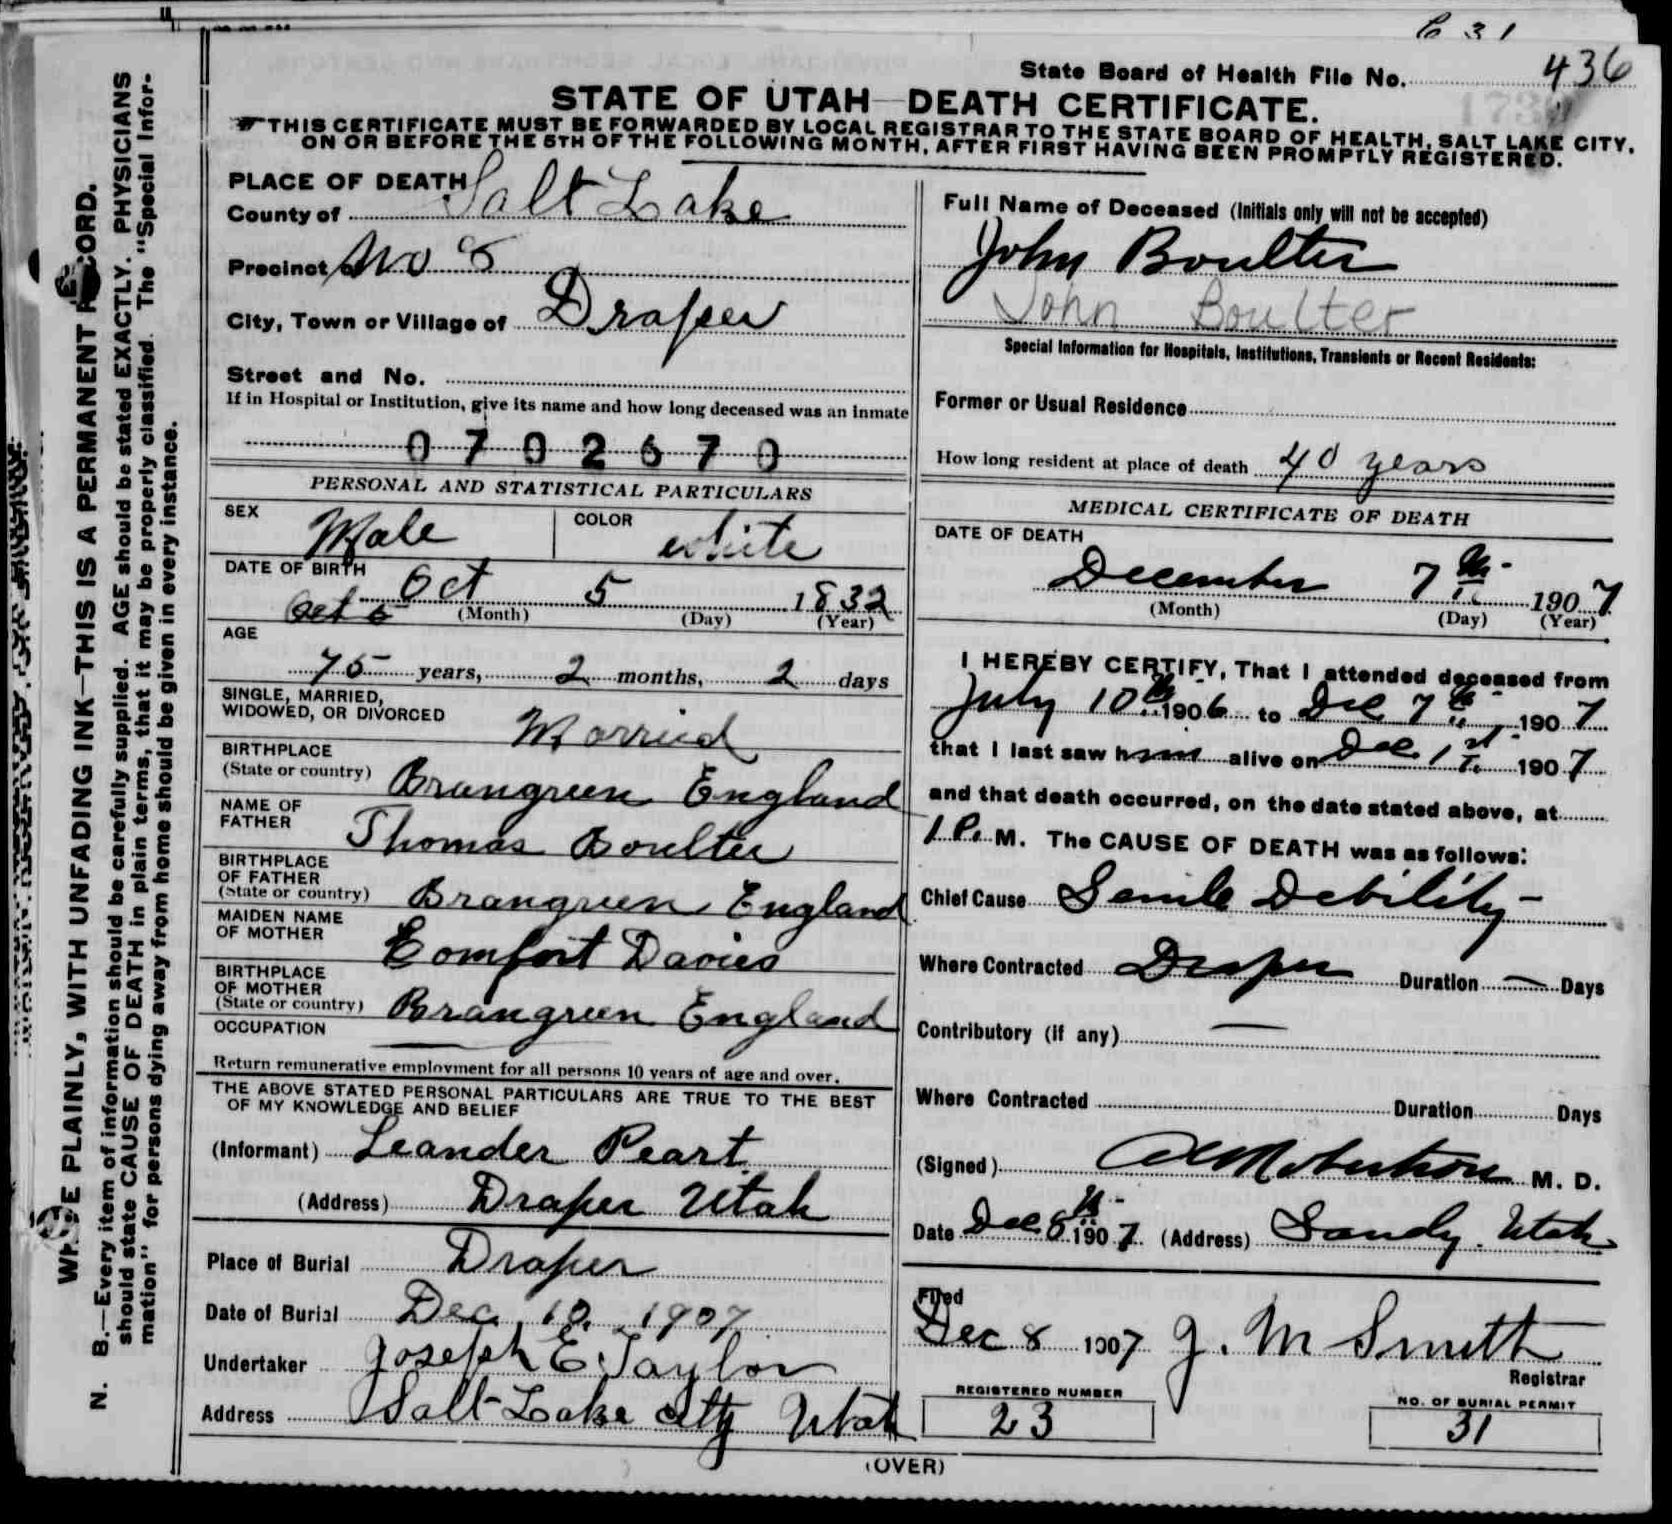 State Board of Health File No. 436
STATE OF UTAH—DEATH CERTIFICATE.
THIS CERTIFICATE MUST BE FORWARDED BY LOCAL REGISTRAR TO THE STATE BOARD OF HEALTH, SALT LAKE CITY,
ON OR BEFORE THE 5TH OF THE FOLLOWING MONTH, AFTER FIRST HAVING BEEN PROMPTLY REGISTERED.
N. B.—Every item of information should be carefully supplied. AGE should be stated EXACTLY. PHYSICIANS
should state CAUSE OF DEATH in plain terms, that it may be properly classified. The "Special Infor-
mation" for persons dying away from home should be given in every instance.
PLAINLY, WITH UNFADING INK—THIS IS A PERMANENT
PLACE OF DEATH
County of Salt Lake
Precinct of No 8
City, Town or Village of Draper
Street and No.
If in Hospital or Institution, give its name and how long deceased was an inmate
0702670
PERSONAL AND STATISTICAL PARTICULARS
SEX Male COLOR white
DATE OF BIRTH
Oct 5 1832
Oct 5 (Month) (Day) (Year)
AGE
75 years, 2 months, 2 days
SINGLE, MARRIED,
WIDOWED, OR DIVORCED Married
BIRTHPLACE
(State or country) Brangreen England
NAME OF
FATHER Thomas Boulter
BIRTHPLACE
OF FATHER
(State or country) Brangreen England
MAIDEN NAME
OF MOTHER Comfort Davies
BIRTHPLACE
OF MOTHER
(State or country) Brangreen England
OCCUPATION
Return remunerative employment for all persons 10 years of age and over.
THE ABOVE STATED PERSONAL PARTICULARS ARE TRUE TO THE BEST
OF MY KNOWLEDGE AND BELIEF
(Informant) Leander Peart
(Address) Draper Utah
Place of Burial Draper
Date of Burial Dec 10. 1907
Undertaker Joseph E. Taylor
Address Salt Lake City Utah
Full Name of Deceased (Initials only will not be accepted)
John Boulter
John Boulter
Special Information for Hospitals, Institutions, Transients or Recent Residents:
Former or Usual Residence
How long resident at place of death 40 years
MEDICAL CERTIFICATE OF DEATH
DATE OF DEATH
December 7th 1907
(Month) (Day) (Year)
I HEREBY CERTIFY, That I attended deceased from
July 10th 1906 to Dec 7th 1907
that I last saw him alive on Dec 1st 1907
and that death occurred, on the date stated above, at
1 P. M. The CAUSE OF DEATH was as follows:
Chief Cause Senile Debility—
Where Contracted Draper Duration — Days
Contributory (if any) —
Where Contracted Duration Days
(Signed) Robertson M. D.
Date Dec 8th 1907 (Address) Sandy. Utah
Filed
Dec 8 1907 J. M Smith
Registrar
REGISTERED NUMBER
23
NO. OF BURIAL PERMIT
31
(OVER)